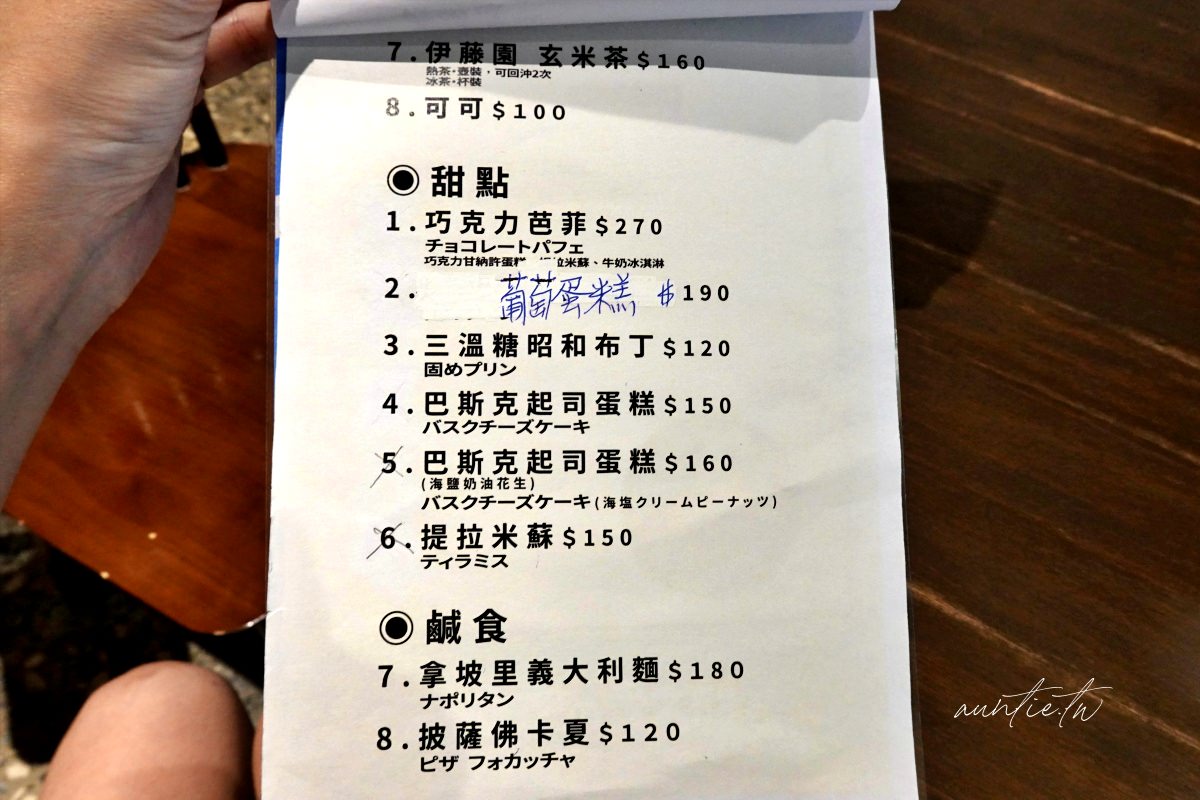 7.伊藤園 玄米茶$160
熱茶·壺裝，可回沖2次
冰茶·杯裝
8.可可$100
◉甜點
1.巧克力芭菲$270
チョコレートパフェ
巧克力甘納許蛋糕、提拉米蘇、牛奶冰淇淋
2. 葡萄蛋糕 $190
3.三溫糖昭和布丁$120
固めプリン
4.巴斯克起司蛋糕$150
バスクチーズケーキ
5.巴斯克起司蛋糕$160
(海鹽奶油花生)
バスクチーズケーキ(海塩クリームピーナッツ)
6.提拉米蘇$150
ティラミス
◉鹹食
7.拿坡里義大利麵$180
ナポリタン
8.披薩佛卡夏$120
ピザ フォカッチャ
auntie.tw